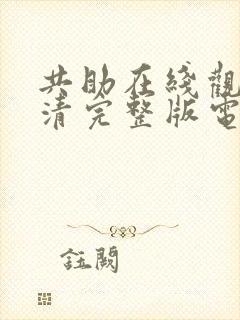 共助在綫觀
清完整版電
註闕